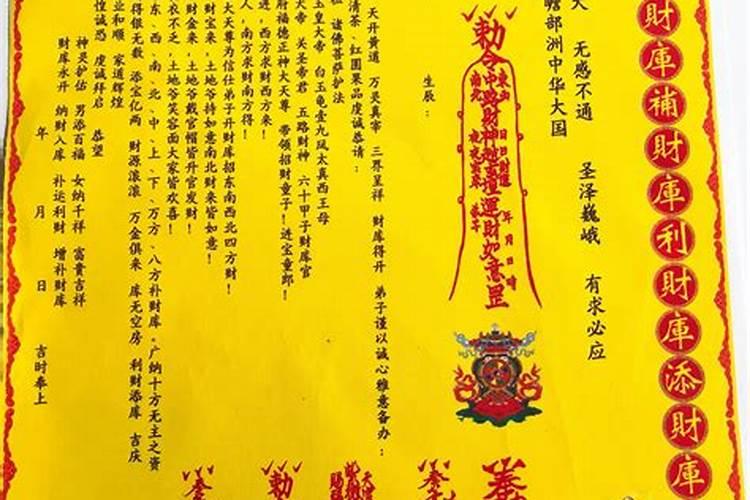 財庫補財庫利財庫添財庫
天 無感不通 圣泽巍峨 有求必应
瞻部洲中华大国
勅令
中路财神赵玄坛运财如意罡
年 月 日 时
生辰：
天开黄道 万灵真宰 三界呈祥 财库得开 弟子谨以诚心雅意备办：
清茶、红圆果品虔诚恭请：
诸佛菩萨护法
玉皇大帝 白玉龟壹九凤太真西王母
大帝 关圣帝君 五路财神 六十甲子财库官
府福德正神大天尊 带领招财童子！进宝童郎！
进，西方求财西方来！
人，南方求财南方得！
大天尊为信仕弟子开财库招东南西北四方财！
财宝来，土地爷持如意南北财来皆如意！
财金来，土地爷戴官帽皆升官发财！
衣不乏，土地爷笑容面大家皆欢喜！
东、西、南、北、中、上、下、万方、八方补财库。广纳十方无主之资
得银无数 添宝亿两 财源滚滚 万金俱来 库无空房 利财添库 吉庆
业和顺 家道辉煌
惶诚恐 虔诚拜启 恭望
神灵护佑 男添百福 女纳千祥 富贵吉祥
财库永开 纳财入库 补运利财 增补财库
年 月 日 吉时奉上
勅